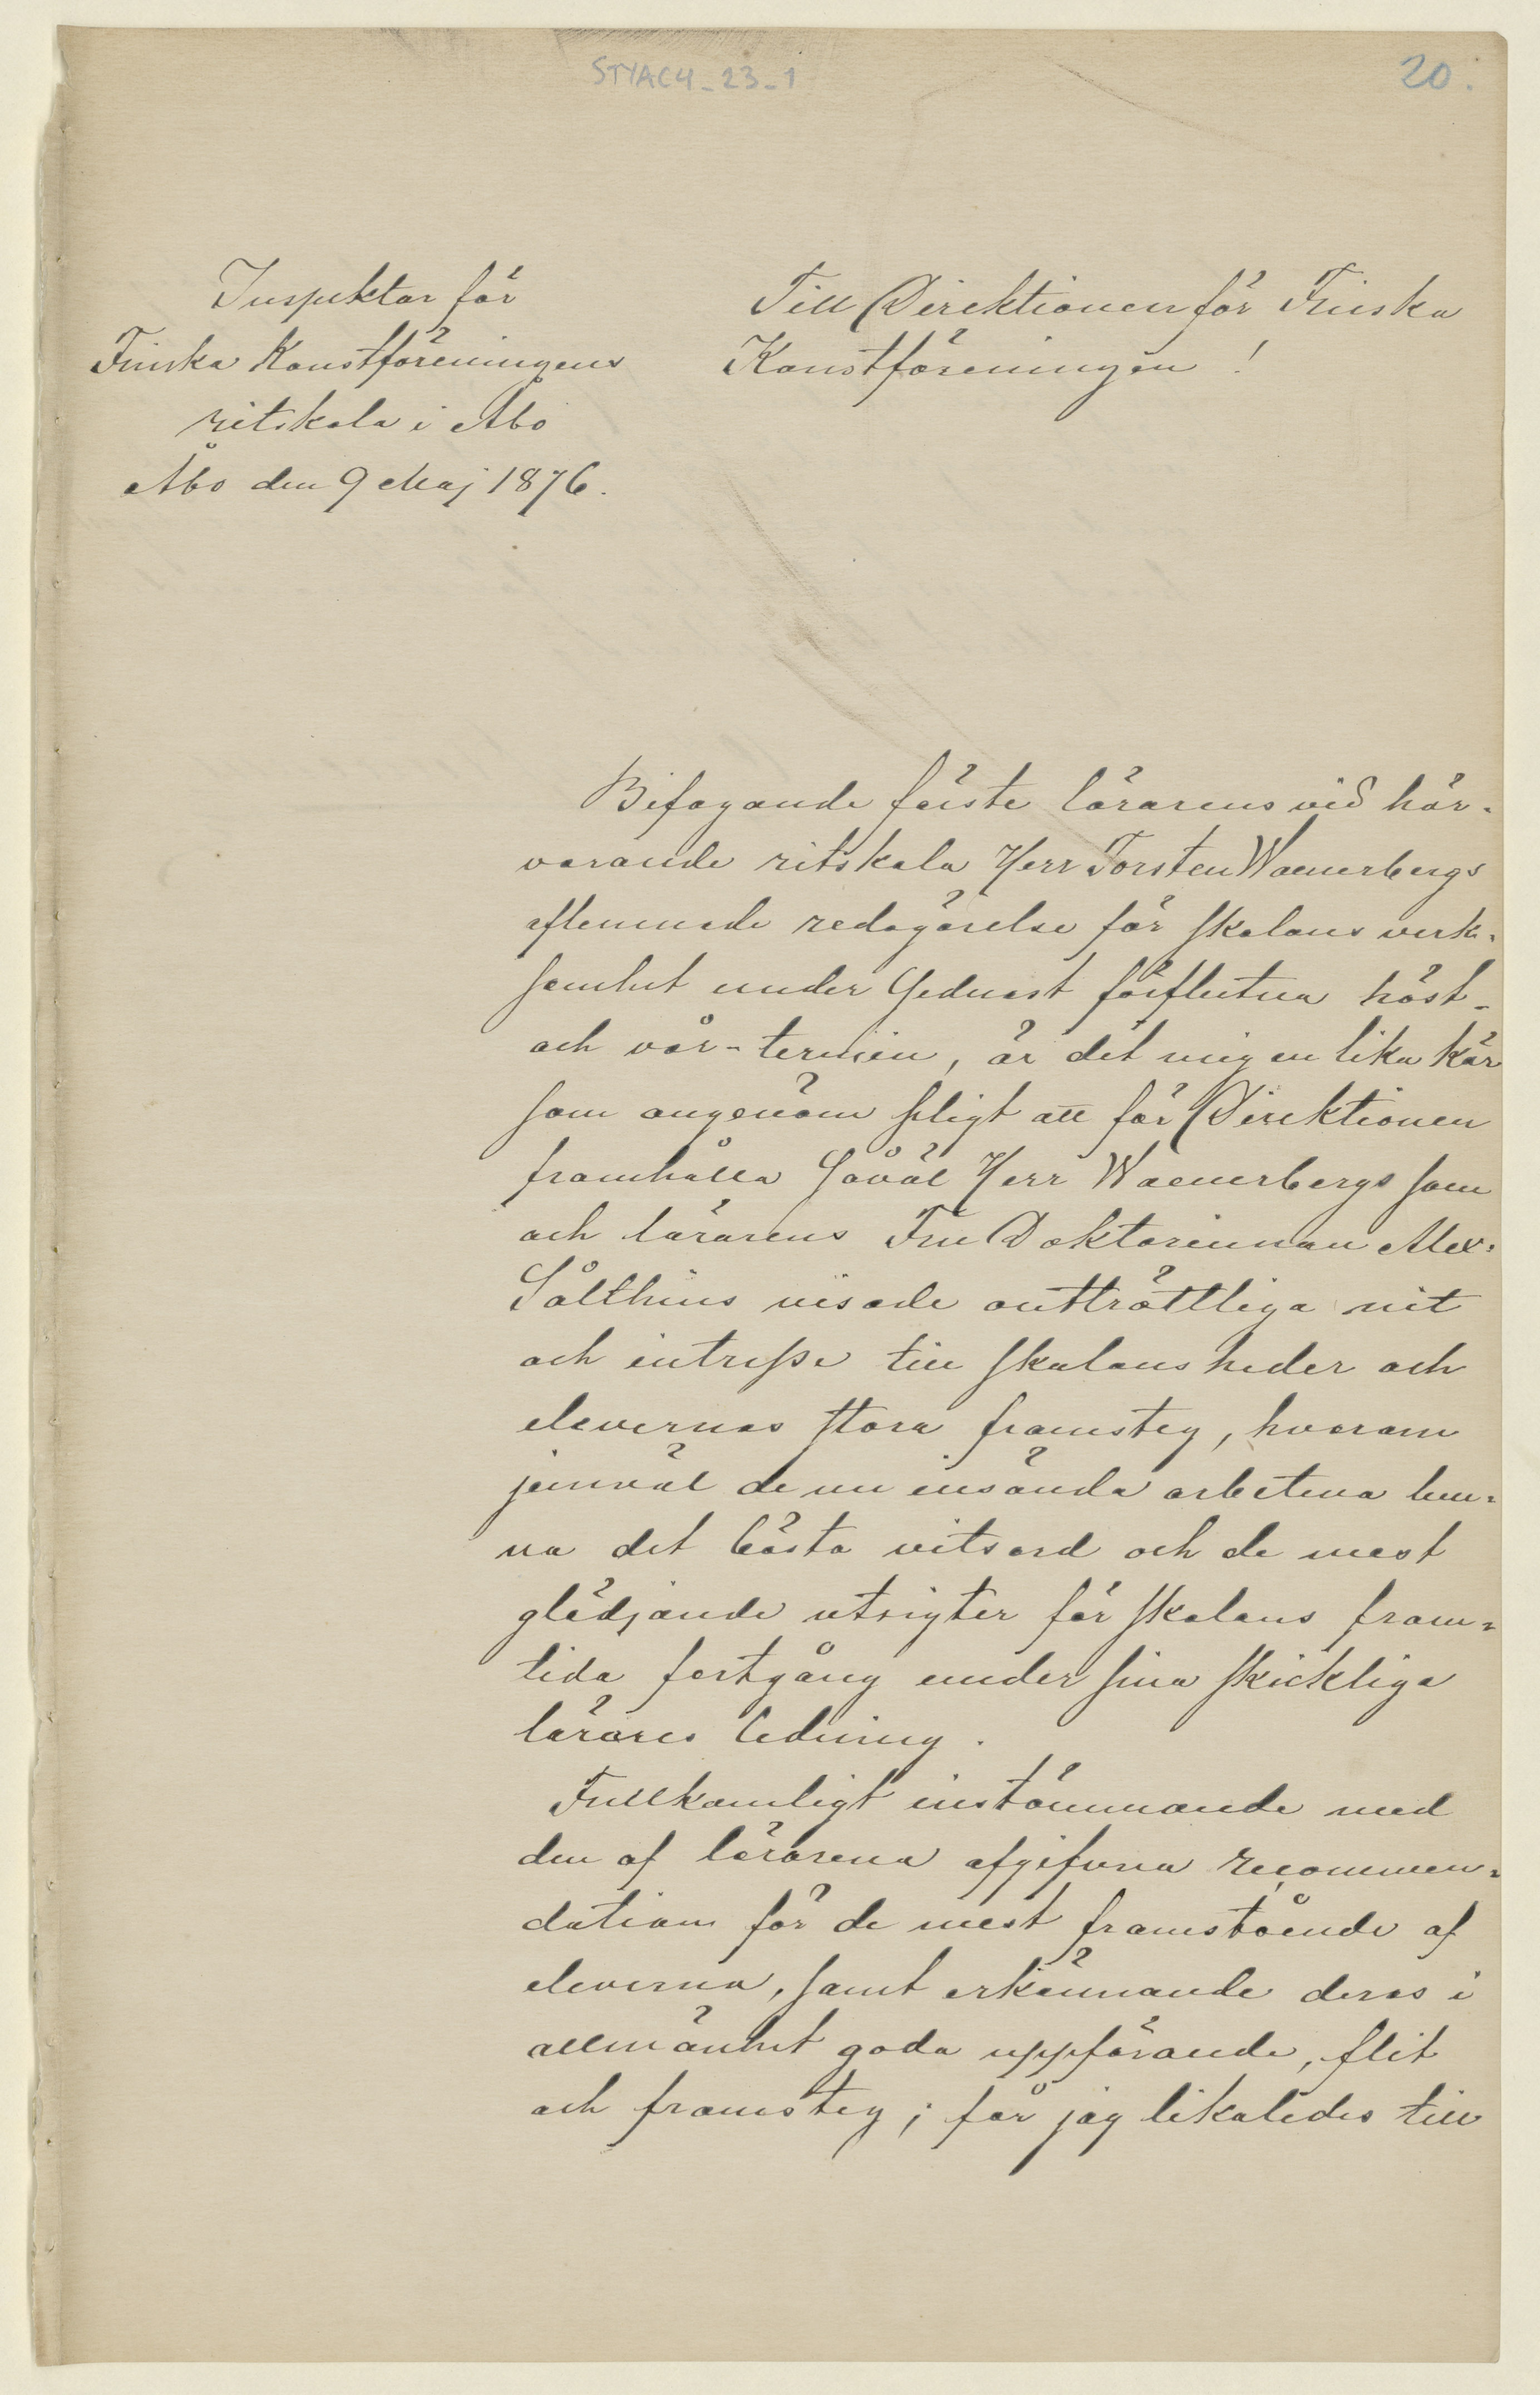 STYAC4_23_1
20.
Inspektor för
Finska Konstföreningens
ritskola i Åbo
Åbo den 9 Maj 1876.
Till Direktionen för Finska
Konstföreningen!
Bifogande förste lärarens vid här-
varande ritskola Herr Torsten Waenerbergs
aflemnade redogörelse för skolans verk-
samhet under sednast förflutna höst-
och vår-termin, är det mig en lika kär
som angenäm pligt att för Direktionen
framhålla såväl Herr Waenerbergs som
och lärarens Fru Doktorinnan Alex:
Sålthins visade outtröttliga nit
och intresse till skolans heder och
elevernas stora framsteg, hvarom
jemväl de nu insända arbetena lem-
na det bästa vitsord och de mest
glädjande utsigter för skolans fram-
tida fortgång under sina skickliga
lärares ledning.
Fullkomligt instämmande med
den af lärarena afgifvna recommen-
dation för de mest framstående af
eleverna, samt erkännande deras i
allmänhet goda uppförande, flit
och framsteg; får jag likaledes till